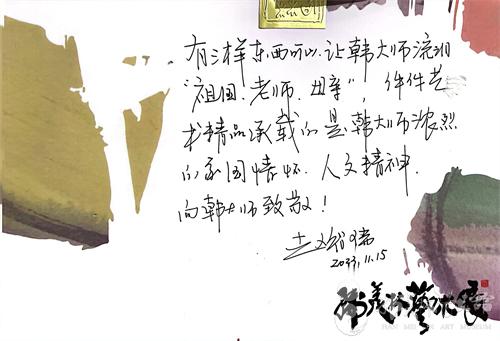 有三样东西可以让韩大师流泪
“祖国、老师、母亲”，件件艺
术精品承载的是韩大师浓烈
的家国情怀、人文精神.
向韩大师致敬！
2023.11.15
韩美林艺术展
HAN MEI LIN ART MUSEUM